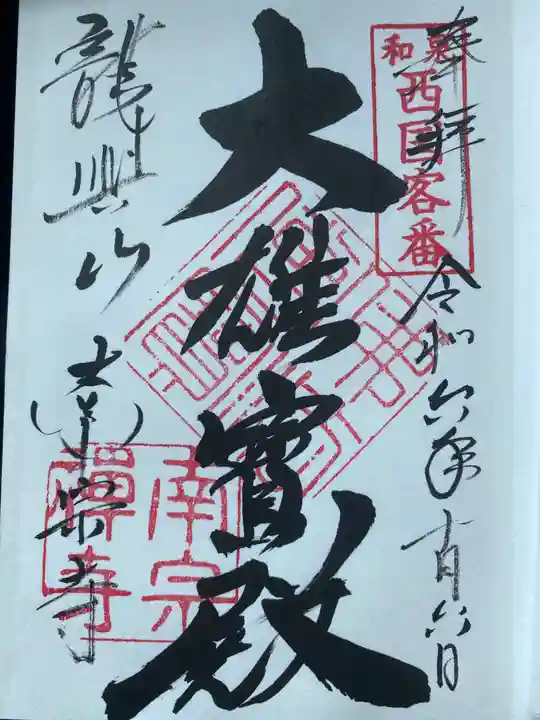 奉拝
和泉
西国客番
令和六年十一月六日
大雄寳殿
龍興山
南宗
禅寺
南宗寺